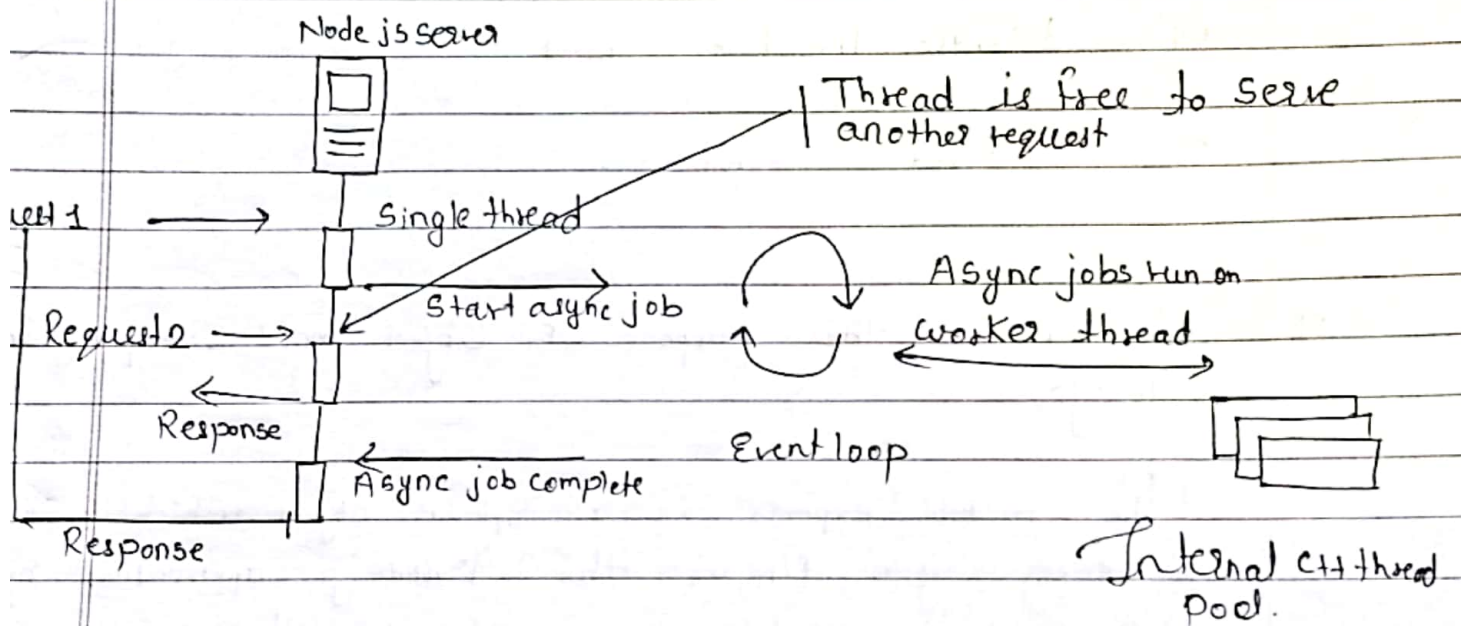 Node js server
Thread is free to serve
another request
uest 1
Single thread
Start async job
Async jobs run on
worker thread
Request 2
Response
Event loop
Async job complete
Response
Internal C++ thread
pool.